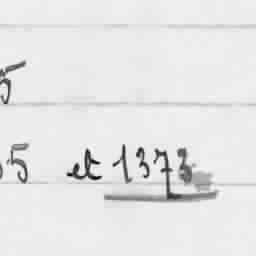 5
5 et 1373